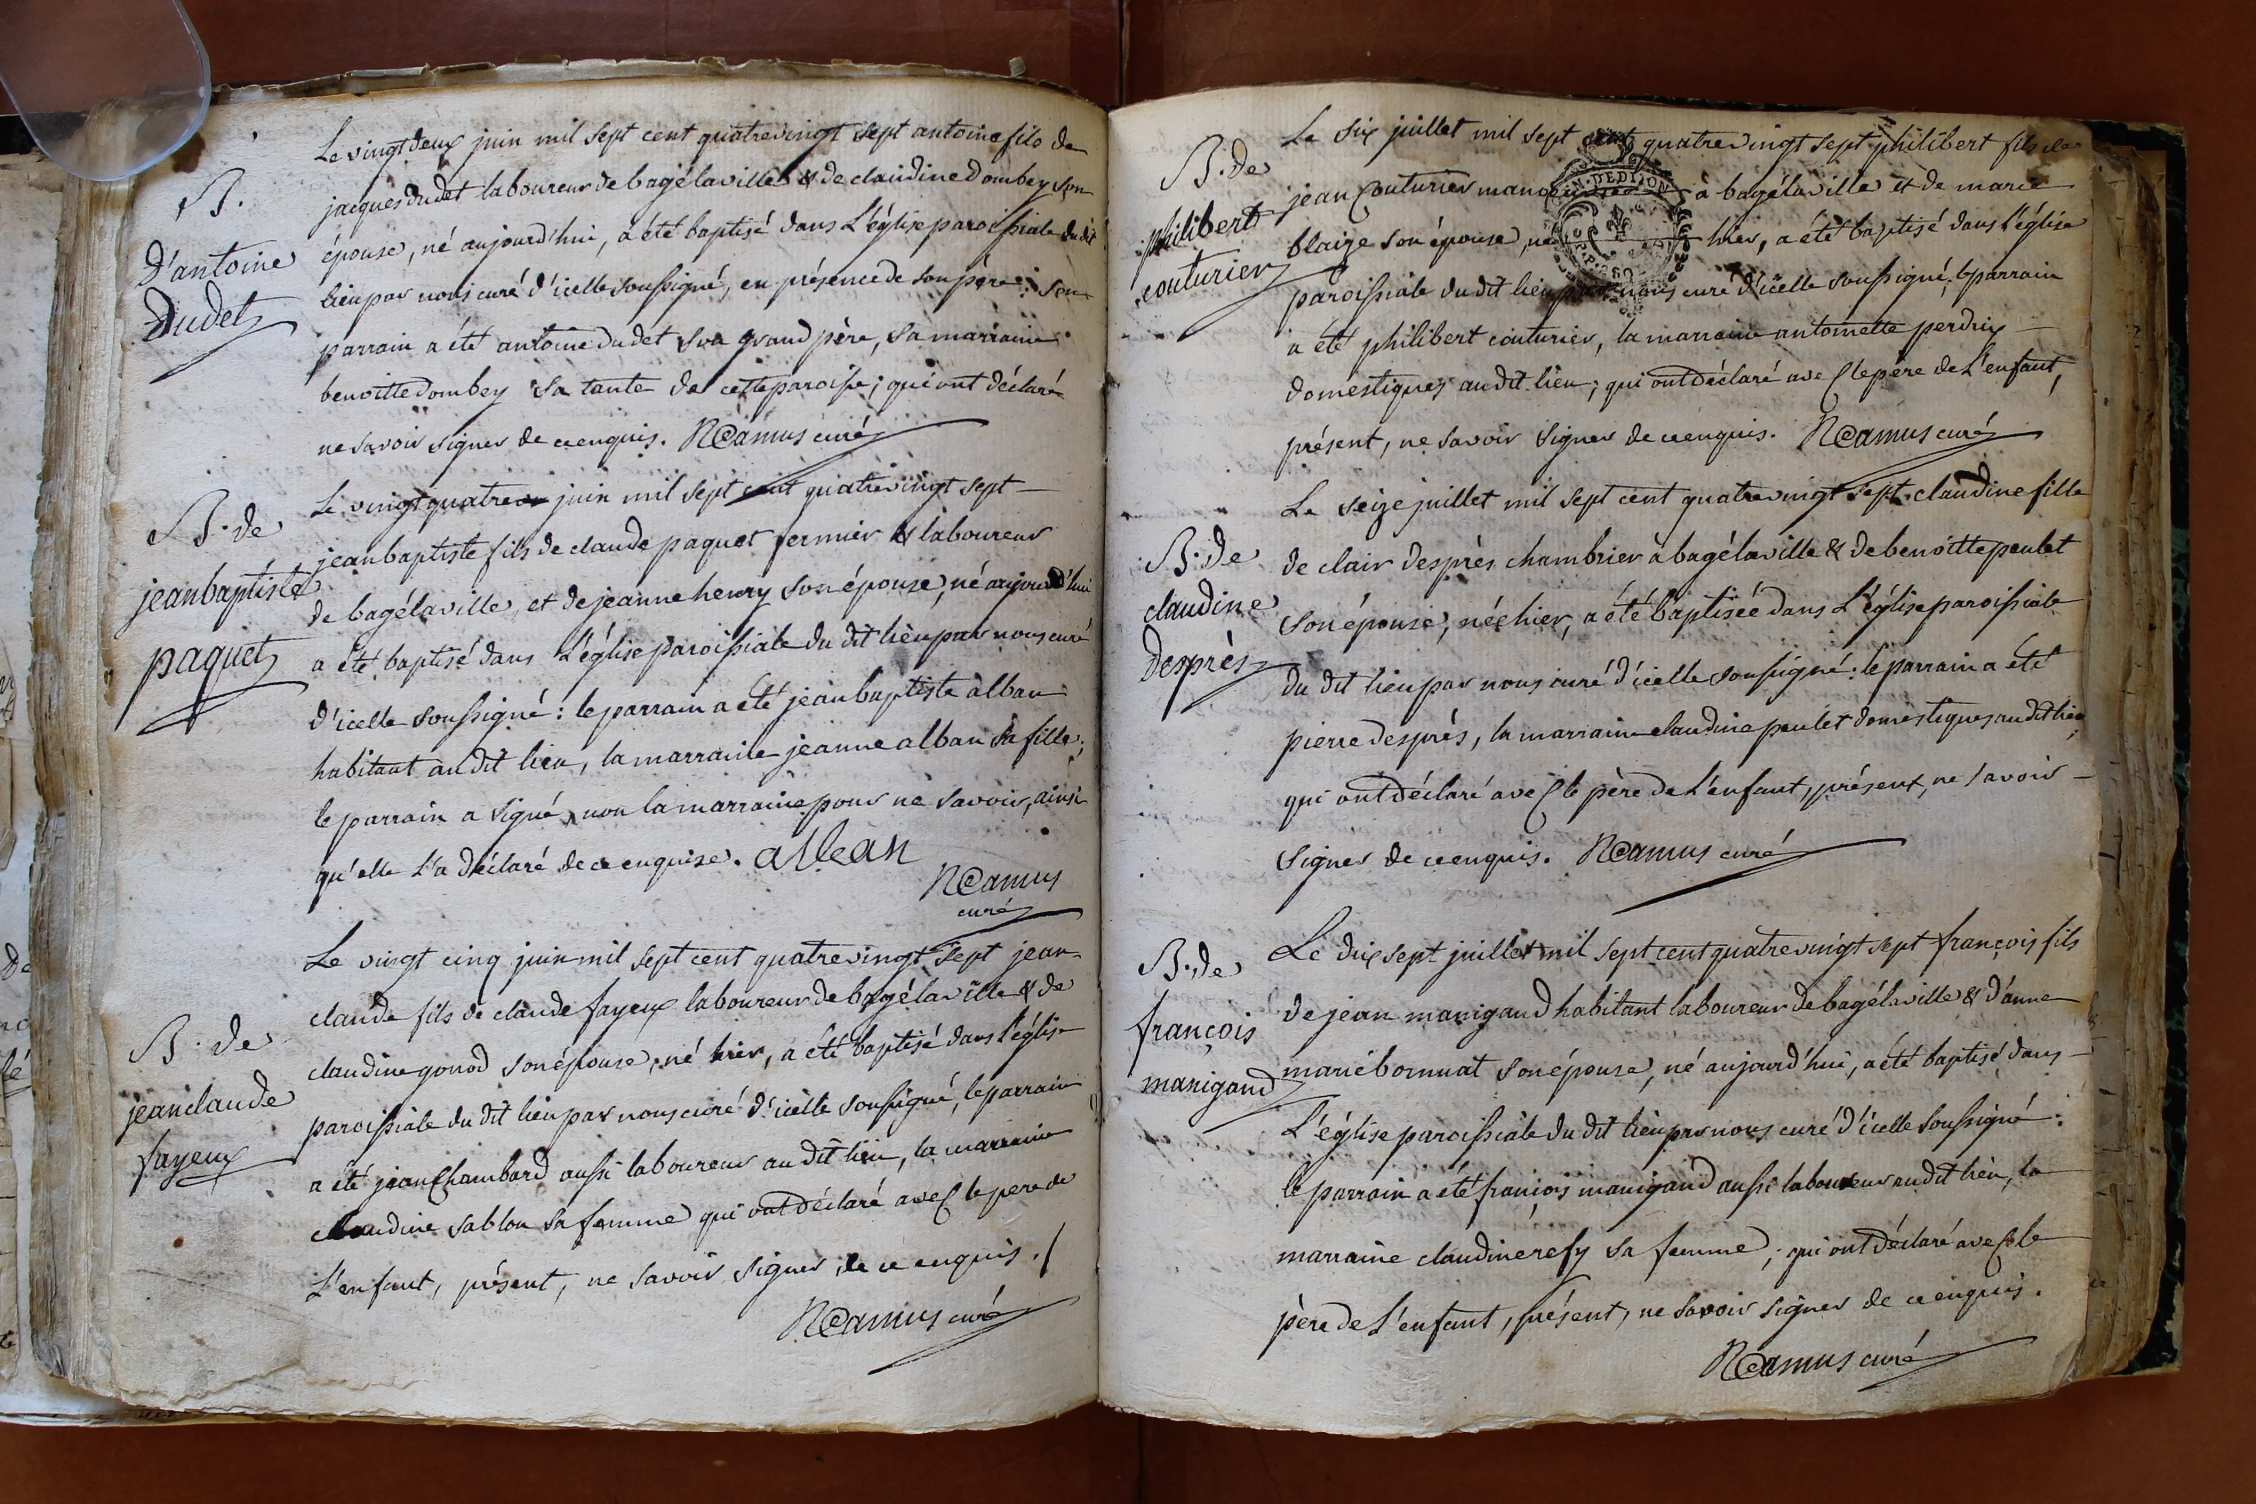 Le vingt deux juin mil sept cent quatrevingt sept antoine fils de
B.
jacques dudet laboureur de bagélaville & de claudine Dombey son
D'antoine
épouse, né aujourd'hui, a été baptisé dans L'église paroissiale du dit
Dudet
lieu par nous curé d'icelle soussigné, en présence de son père: son
parrain a été antoine dudet son grand père, sa marraine
benoitte dombey sa tante de cette paroisse; qui ont déclaré
ne savoir signer de ce enquis. N Camus curé
Le vingt quatre juin mil sept cent quatrevingt sept
B. de
jean baptiste fils de claude paquet fermier & laboureur
jean baptiste
de bagélaville, et de jeanne henry son épouse, né aujourd'hui
paquet
a été baptisé dans L'église paroissiale du dit lieu par nous curé
d'icelle soussigné: le parrain a été jean baptiste alban
habitant au dit lieu, la marraine jeanne alban sa fille;
le parrain a signé, non la marraine pour ne savoir, ainsi
qu'elle L'a déclaré de ce enquise.
N Camus
curé
Le vingt cinq juin mil sept cent quatre vingt sept jean
claude fils de claude fayeux laboureur de bagélaville & de
B. de
claudine gonod son épouse, né hier, a été baptisé dans l'église
jean claude
paroissiale du dit lieu par nous curé d'icelle soussigné, le parrain
fayeux
a été jean Chambard aussi laboureur au dit lieu, la marraine
claudine sablon sa femme qui ont déclaré avec le pere de
L'enfant, présent, ne savoir signer de ce enquis. /
N Camus curé
Le six juillet mil sept cent quatrevingt sept philibert fils de
B. de
jean Couturier à bagélaville et de marie
philibert
blaize son épouse, né hier, a été baptisé dans l'église
couturier
N. DE DIJON
paroissiale du dit lieu par nous curé d'icelle soussigné, le parrain
a été philibert couturier, la marraine antoinette perdrix
domestiques au dit lieu; qui ont déclaré avec le père de L'enfant,
présent, ne savoir signer de ce enquis. N Camus curé
Le seize juillet mil sept cent quatrevingt sept claudine fille
B. de
de clair desprès chambrier à bagélaville & de benoitte peulet
claudine
son épouse, née hier, a été baptisée dans L'église paroissiale
Desprès
du dit lieu par nous curé d'icelle soussigné: le parrain a été
pierre desprès, la marraine claudine peulet domestiques au dit lieu,
qui ont déclaré avec le père de L'enfant, présent, ne savoir
signer de ce enquis. N Camus curé
Le dix sept juillet mil sept cent quatre vingt sept françois fils
B. de
de jean manigand habitant laboureur de bagélaville & d'anne
françois
marie bornuat son épouse, né aujourd'hui, a été baptisé dans
manigand
L'église paroissiale du dit lieu par nous curé d'icelle soussigné:
le parrain a été françois manigand aussi laboureur au dit lieu, la
marraine claudine refy sa femme; qui ont déclaré avec le
père de L'enfant, présent, ne savoir signer de ce enquis.
N Camus curé